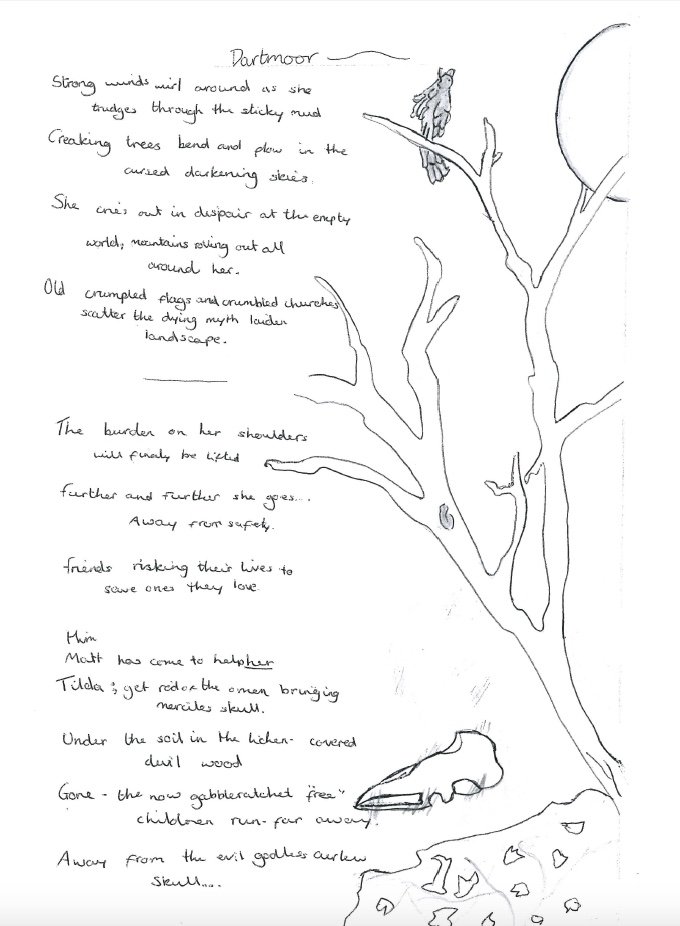 Dartmoor
Strong winds wirl around as she
trudges through the sticky mud
Creaking trees bend and plow in the
cursed darkening skies.
She cries out in despair at the empty
world; mountains rolling out all
around her.
Old crumpled flags and crumbled churches
scatter the dying myth laiden
landscape.
The burden on her shoulders
will finaly be lifted
further and further she goes....
Away from safety.
friends risking their lives to
save ones they love.
Him
Matt has come to help her
Tilda; get rid of the omen bringing
merciles skull.
Under the soil in the lichen-covered
devil wood
Gone - the now gabbleratchet "free"
children run-far away.
Away from the evil godless curlew
skull....